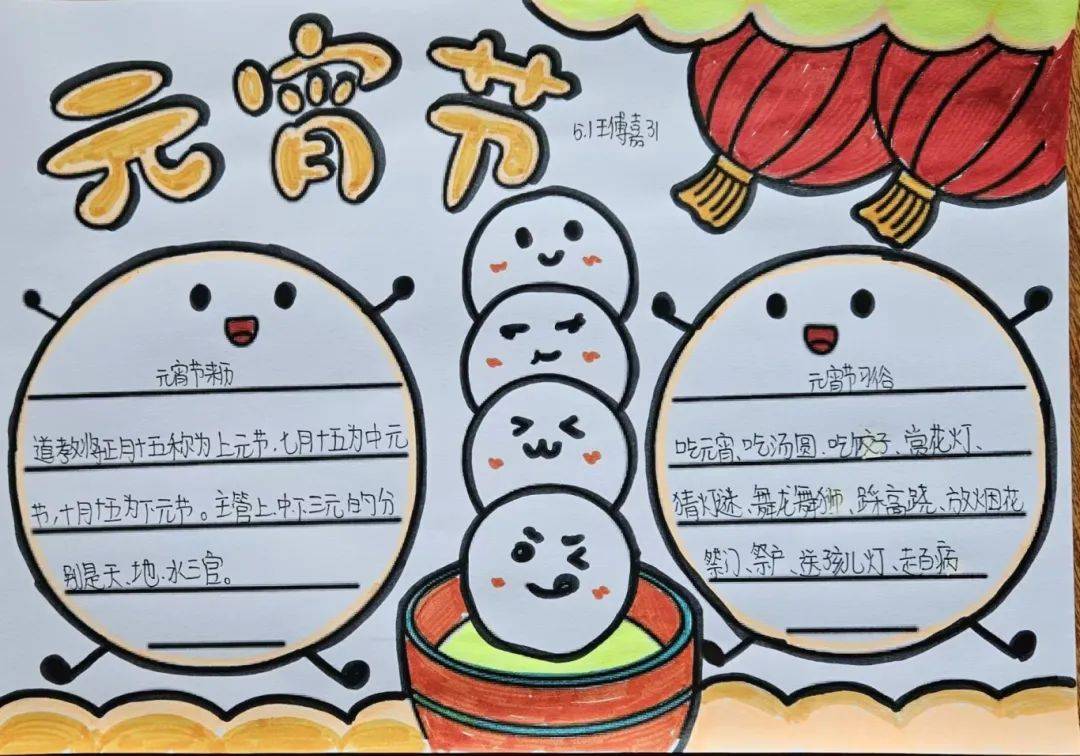 元宵节
5.1 王傅嘉 31
元宵节来历
道教将正月十五称为上元节,七月十五为中元
节,十月十五为下元节。主管上、中、下三元的分
别是天、地、水三官。
元宵节习俗
吃元宵、吃汤圆、吃饺子、赏花灯、
猜灯谜、舞龙舞狮、踩高跷、放烟花
祭门、祭户、送孩儿灯、走百病